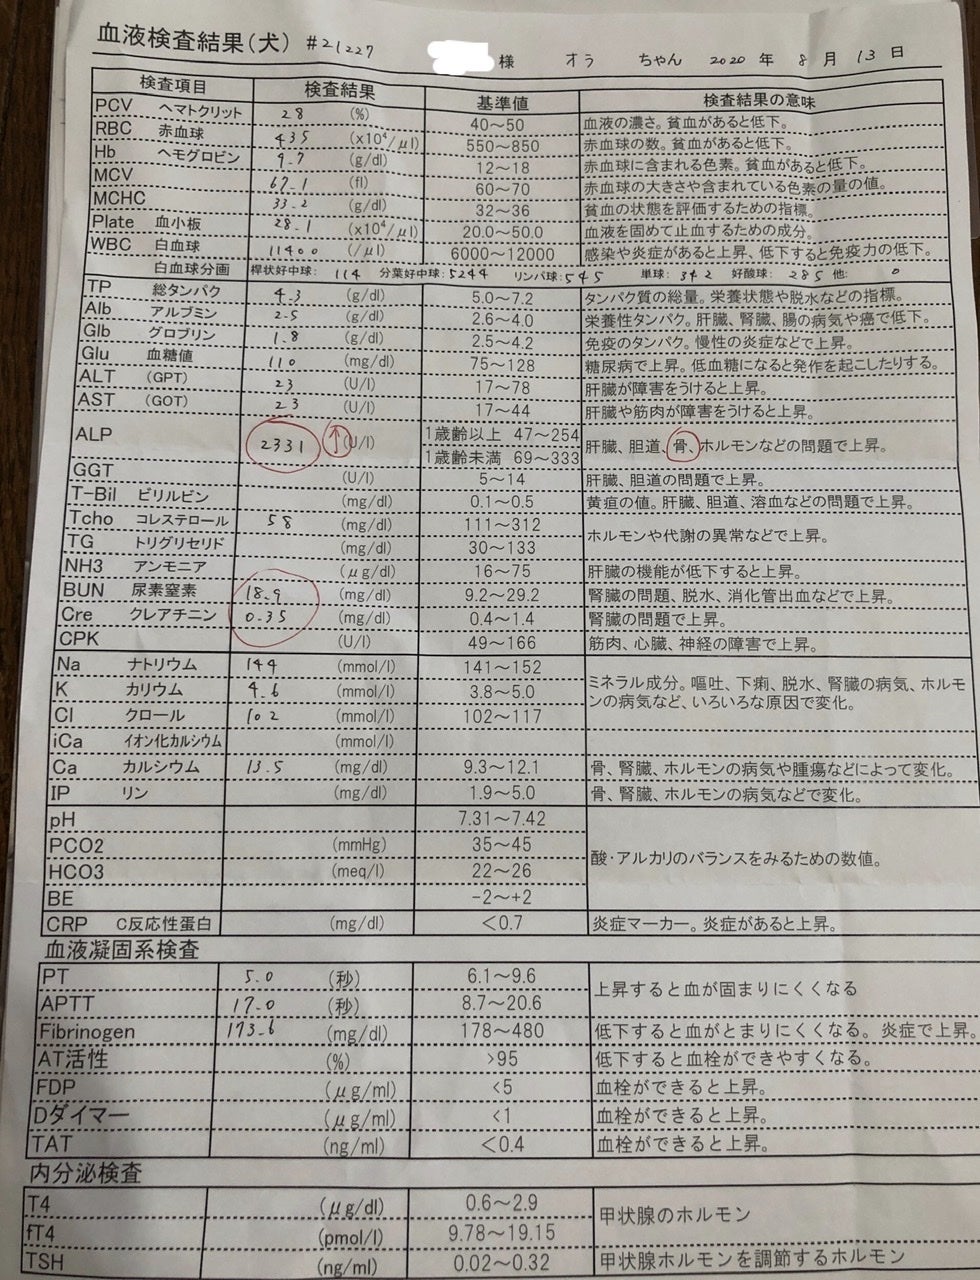 血液検査結果(犬) #21227 様 オラ ちゃん 2020 年 8 月 13 日
検査項目 検査結果 基準値 検査結果の意味
PCV ヘマトクリット 28 (%) 40~50 血液の濃さ。貧血があると低下。
RBC 赤血球 435 (x10⁴/μl) 550~850 赤血球の数。貧血があると低下。
Hb ヘモグロビン 9.7 (g/dl) 12~18 赤血球に含まれる色素。貧血があると低下。
MCV 67.1 (fl) 60~70 赤血球の大きさや含まれている色素の量の値。
MCHC 33.2 (g/dl) 32~36 貧血の状態を評価するための指標。
Plate 血小板 28.1 (x10⁴/μl) 20.0~50.0 血液を固めて止血するための成分。
WBC 白血球 11400 (/μl) 6000~12000 感染や炎症があると上昇、低下すると免疫力の低下。
白血球分画 桿状好中球: 114 分葉好中球: 5244 リンパ球: 545 単球: 342 好酸球: 285 他: 0
TP 総タンパク 4.3 (g/dl) 5.0~7.2 タンパク質の総量。栄養状態や脱水などの指標。
Alb アルブミン 2.5 (g/dl) 2.6~4.0 栄養性タンパク。肝臓、腎臓、腸の病気や癌で低下。
Glb グロブリン 1.8 (g/dl) 2.5~4.2 免疫のタンパク。慢性の炎症などで上昇。
Glu 血糖値 110 (mg/dl) 75~128 糖尿病で上昇。低血糖になると発作を起こしたりする。
ALT (GPT) 23 (U/l) 17~78 肝臓が障害をうけると上昇。
AST (GOT) 23 (U/l) 17~44 肝臓や筋肉が障害をうけると上昇。
ALP 2331 ↑ (U/l) 1歳齢以上 47~254 肝臓、胆道、骨、ホルモンなどの問題で上昇。
1歳齢未満 69~333
GGT (U/l) 5~14 肝臓、胆道の問題で上昇。
T-Bil ビリルビン (mg/dl) 0.1~0.5 黄疸の値。肝臓、胆道、溶血などの問題で上昇。
Tcho コレステロール 58 (mg/dl) 111~312 ホルモンや代謝の異常などで上昇。
TG トリグリセリド (mg/dl) 30~133
NH3 アンモニア (μg/dl) 16~75 肝臓の機能が低下すると上昇。
BUN 尿素窒素 18.9 (mg/dl) 9.2~29.2 腎臓の問題、脱水、消化管出血などで上昇。
Cre クレアチニン 0.35 (mg/dl) 0.4~1.4 腎臓の問題で上昇。
CPK (U/l) 49~166 筋肉、心臓、神経の障害で上昇。
Na ナトリウム 144 (mmol/l) 141~152 ミネラル成分。嘔吐、下痢、脱水、腎臓の病気、ホルモ
K カリウム 4.6 (mmol/l) 3.8~5.0 ンの病気など、いろいろな原因で変化。
Cl クロール 102 (mmol/l) 102~117
iCa イオン化カルシウム (mmol/l)
Ca カルシウム 13.5 (mg/dl) 9.3~12.1 骨、腎臓、ホルモンの病気や腫瘍などによって変化。
IP リン (mg/dl) 1.9~5.0 骨、腎臓、ホルモンの病気などで変化。
pH 7.31~7.42
PCO2 (mmHg) 35~45 酸・アルカリのバランスをみるための数値。
HCO3 (meq/l) 22~26
BE -2~+2
CRP C反応性蛋白 (mg/dl) <0.7 炎症マーカー。炎症があると上昇。
血液凝固系検査
PT 5.0 (秒) 6.1~9.6 上昇すると血が固まりにくくなる
APTT 17.0 (秒) 8.7~20.6
Fibrinogen 173.6 (mg/dl) 178~480 低下すると血がとまりにくくなる。炎症で上昇。
AT活性 (%) >95 低下すると血栓ができやすくなる。
FDP (μg/ml) <5 血栓ができると上昇。
Dダイマー (μg/ml) <1 血栓ができると上昇。
TAT (ng/ml) <0.4 血栓ができると上昇。
内分泌検査
T4 (μg/dl) 0.6~2.9 甲状腺のホルモン
fT4 (pmol/l) 9.78~19.15
TSH (ng/ml) 0.02~0.32 甲状腺ホルモンを調節するホルモン